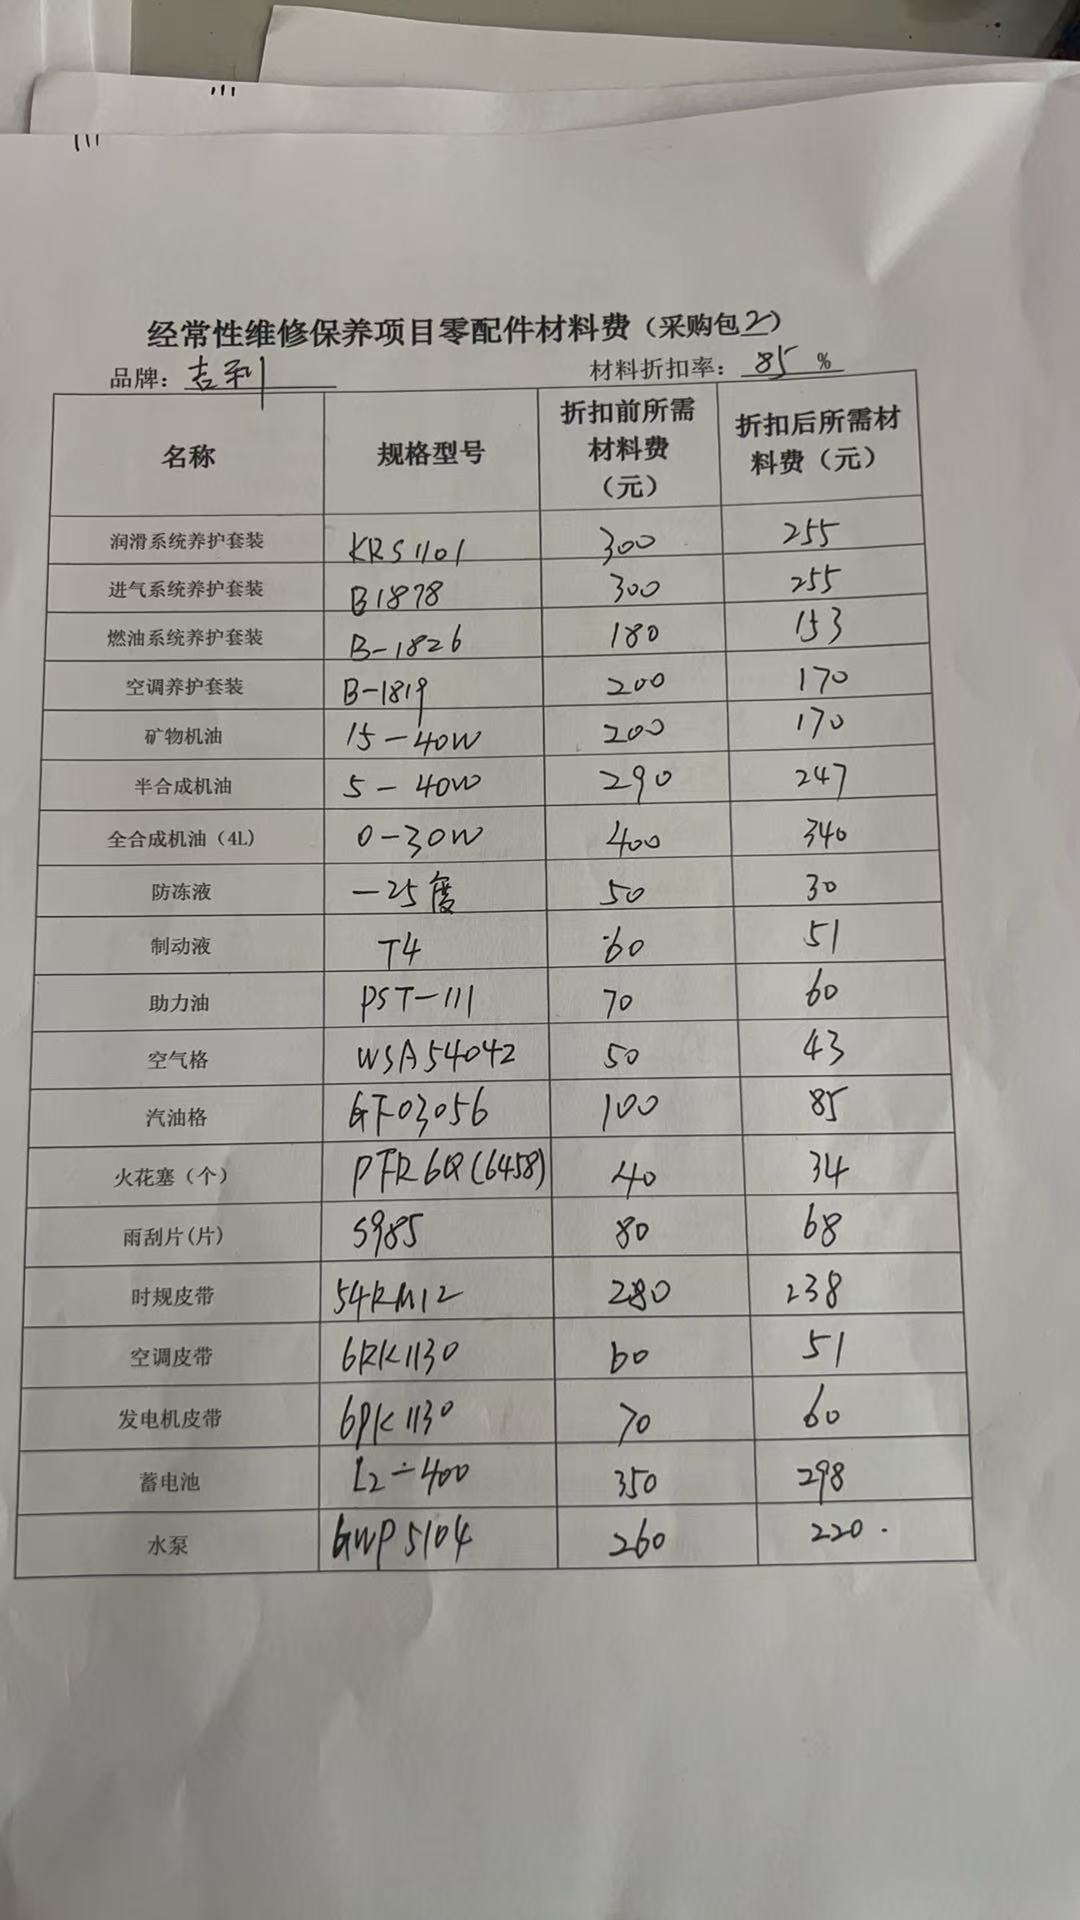 经常性维修保养项目零配件材料费（采购包2）
品牌：吉利 材料折扣率：85 %
名称 规格型号 折扣前所需材料费（元） 折扣后所需材料费（元）
润滑系统养护套装 KRS1101 300 255
进气系统养护套装 B1878 300 255
燃油系统养护套装 B-1826 180 153
空调养护套装 B-1819 200 170
矿物机油 15-40W 200 170
半合成机油 5-40W 290 247
全合成机油（4L） 0-30W 400 340
防冻液 -25度 50 30
制动液 T4 60 51
助力油 PST-111 70 60
空气格 WSA54042 50 43
汽油格 GF03056 100 85
火花塞（个） PFR6Q(6458) 40 34
雨刮片(片) S985 80 68
时规皮带 280 238
空调皮带 6RK1130 60 51
发电机皮带 6PK1130 70 60
蓄电池 L2-400 350 298
水泵 GWP5104 260 220.